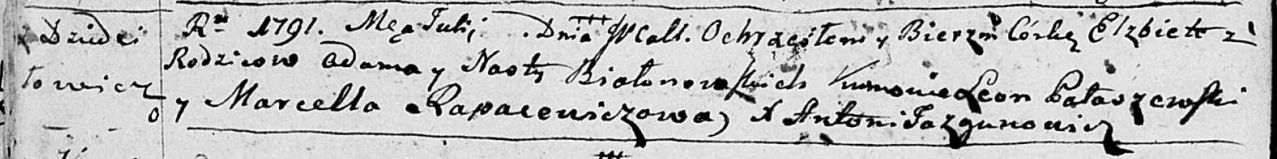 Dzidzi
łowicz
Rn 1791. Mca Julij Dnia Ochrzciłem y Bierzm Córkę Elzbietę z
Rodzicow Adama y Nasty Białonowskich Kumowie Leon Pałaszewski
y Marcella Rapacewiczowa) X Antoni Jazgunowicz